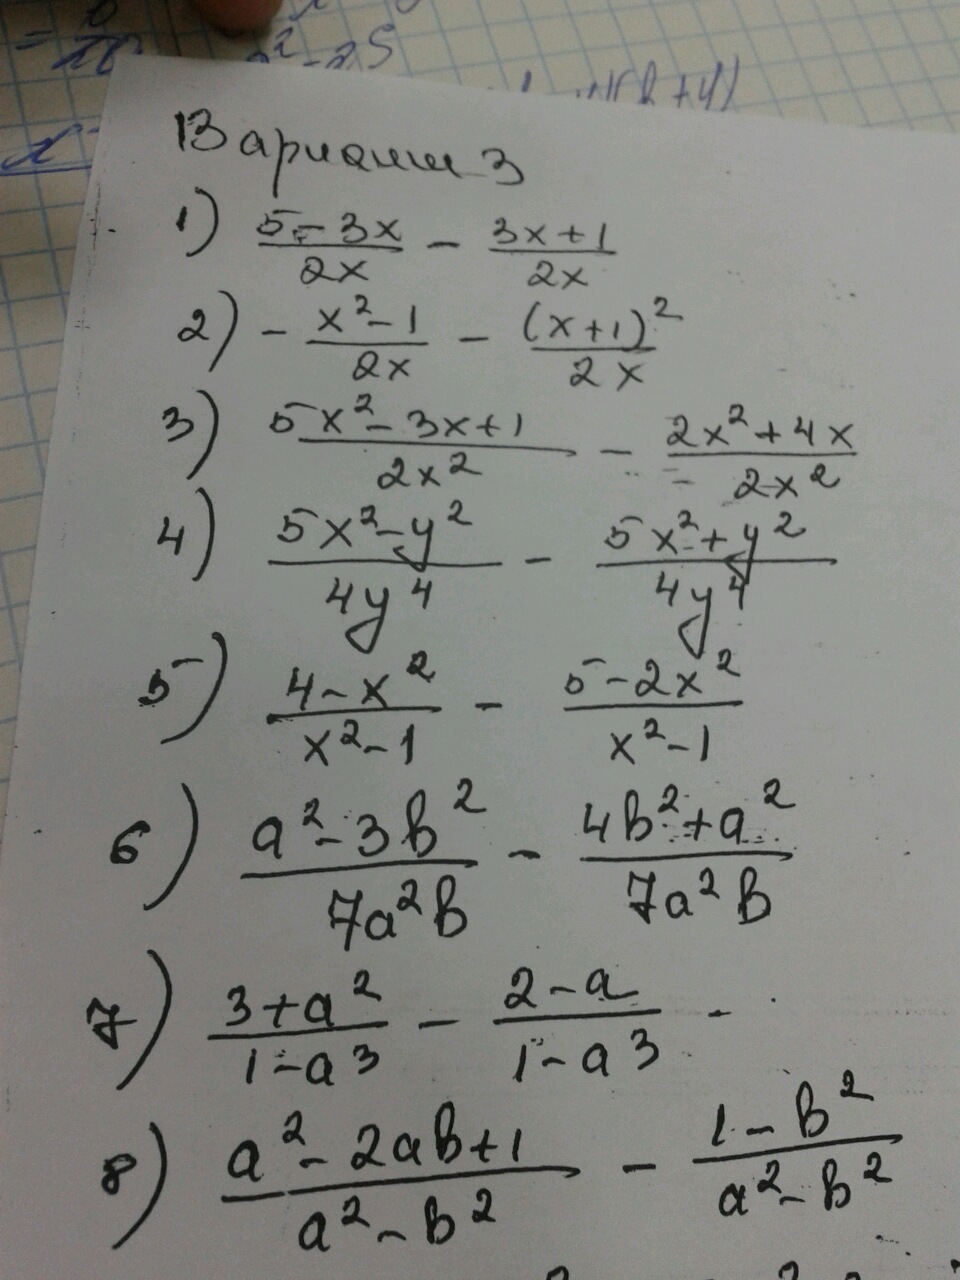 x² - 25
(b + 4)
Вариант 3
1) \frac{5 - 3x}{2x} - \frac{3x + 1}{2x}
2) - \frac{x² - 1}{2x} - \frac{(x + 1)²}{2x}
3) \frac{5x² - 3x + 1}{2x²} - \frac{2x² + 4x}{2x²}
4) \frac{5x² - y²}{4y⁴} - \frac{5x² + y²}{4y⁴}
5) \frac{4 - x²}{x² - 1} - \frac{5 - 2x²}{x² - 1}
6) \frac{a² - 3b²}{7a²b} - \frac{4b² + a²}{7a²b}
7) \frac{3 + a²}{1 - a³} - \frac{2 - a}{1 - a³} -
8) \frac{a² - 2ab + 1}{a² - b²} - \frac{1 - b²}{a² - b²}